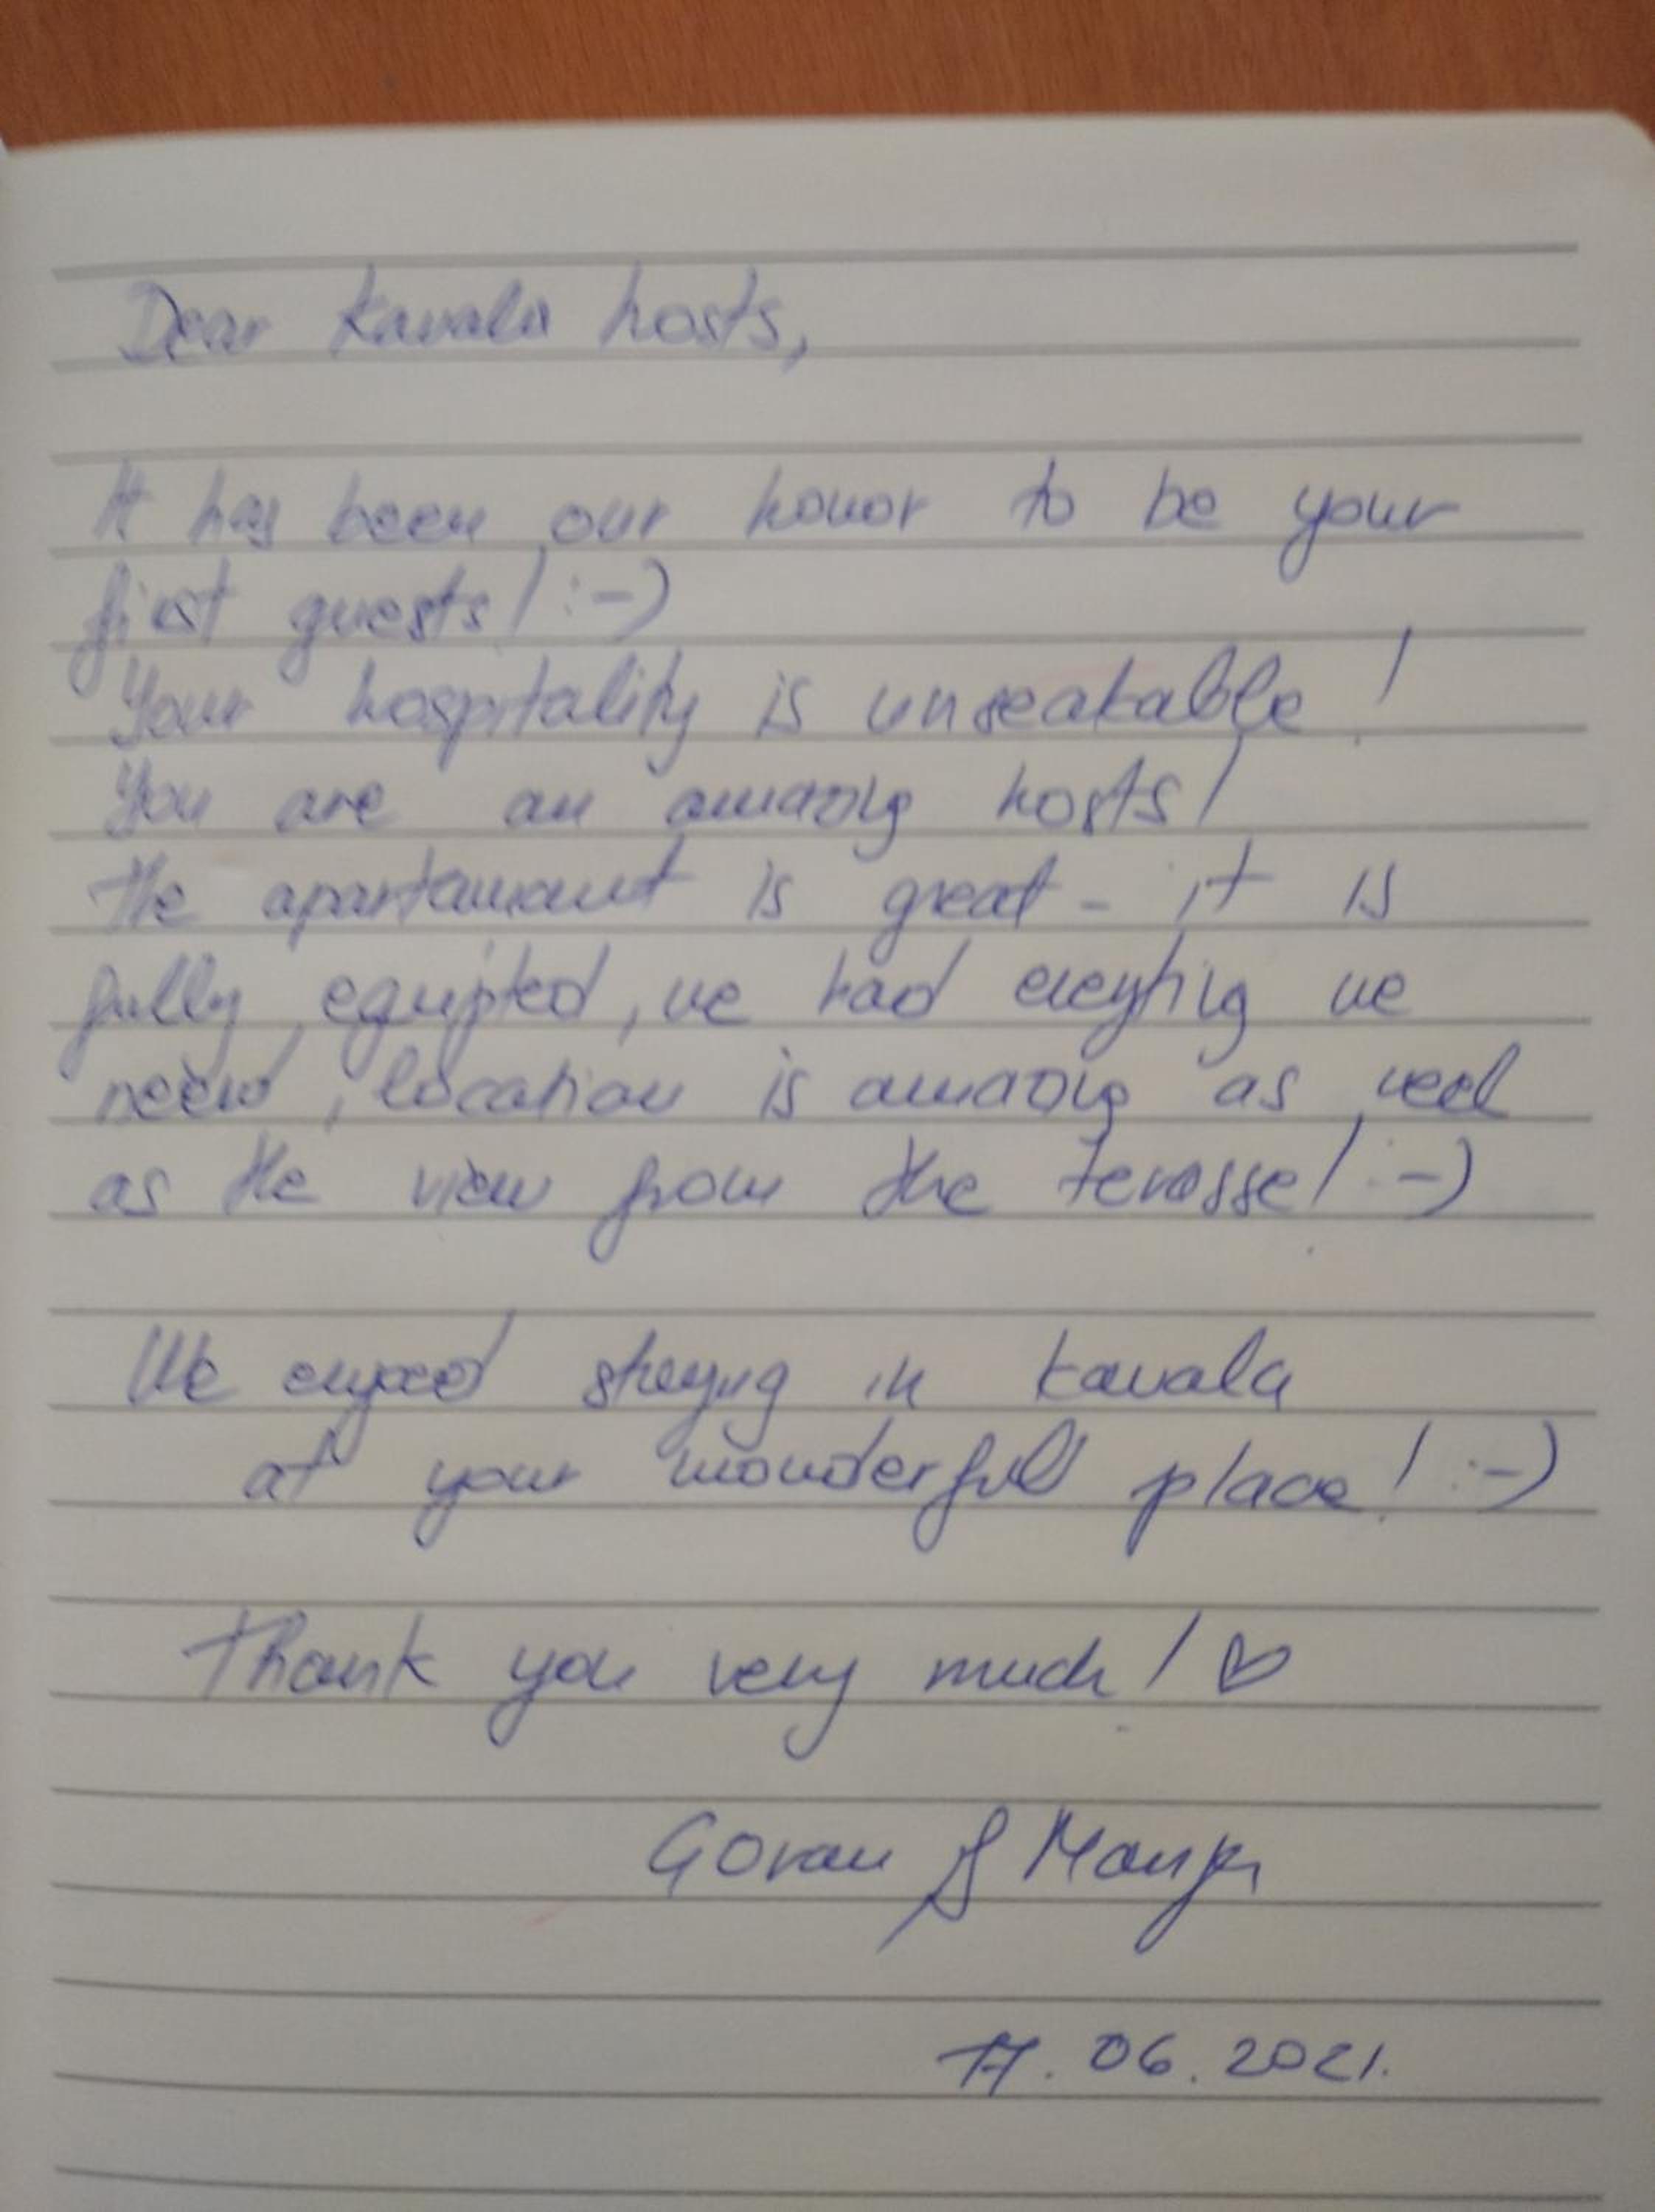 Dear Kavala hosts,
It has been our honor to be your
first guests! :-)
Your hospitality is unseakable!
You are an amazing hosts!
The apartamant is great - it is
fully equipted, we had everything we
need, location is amazing as well
as the view from the terasse! :-)
We enjoed staying in Kavala
at your wonderfull place! :-)
Thank you very much! ♡
Goran &
17.06.2021.